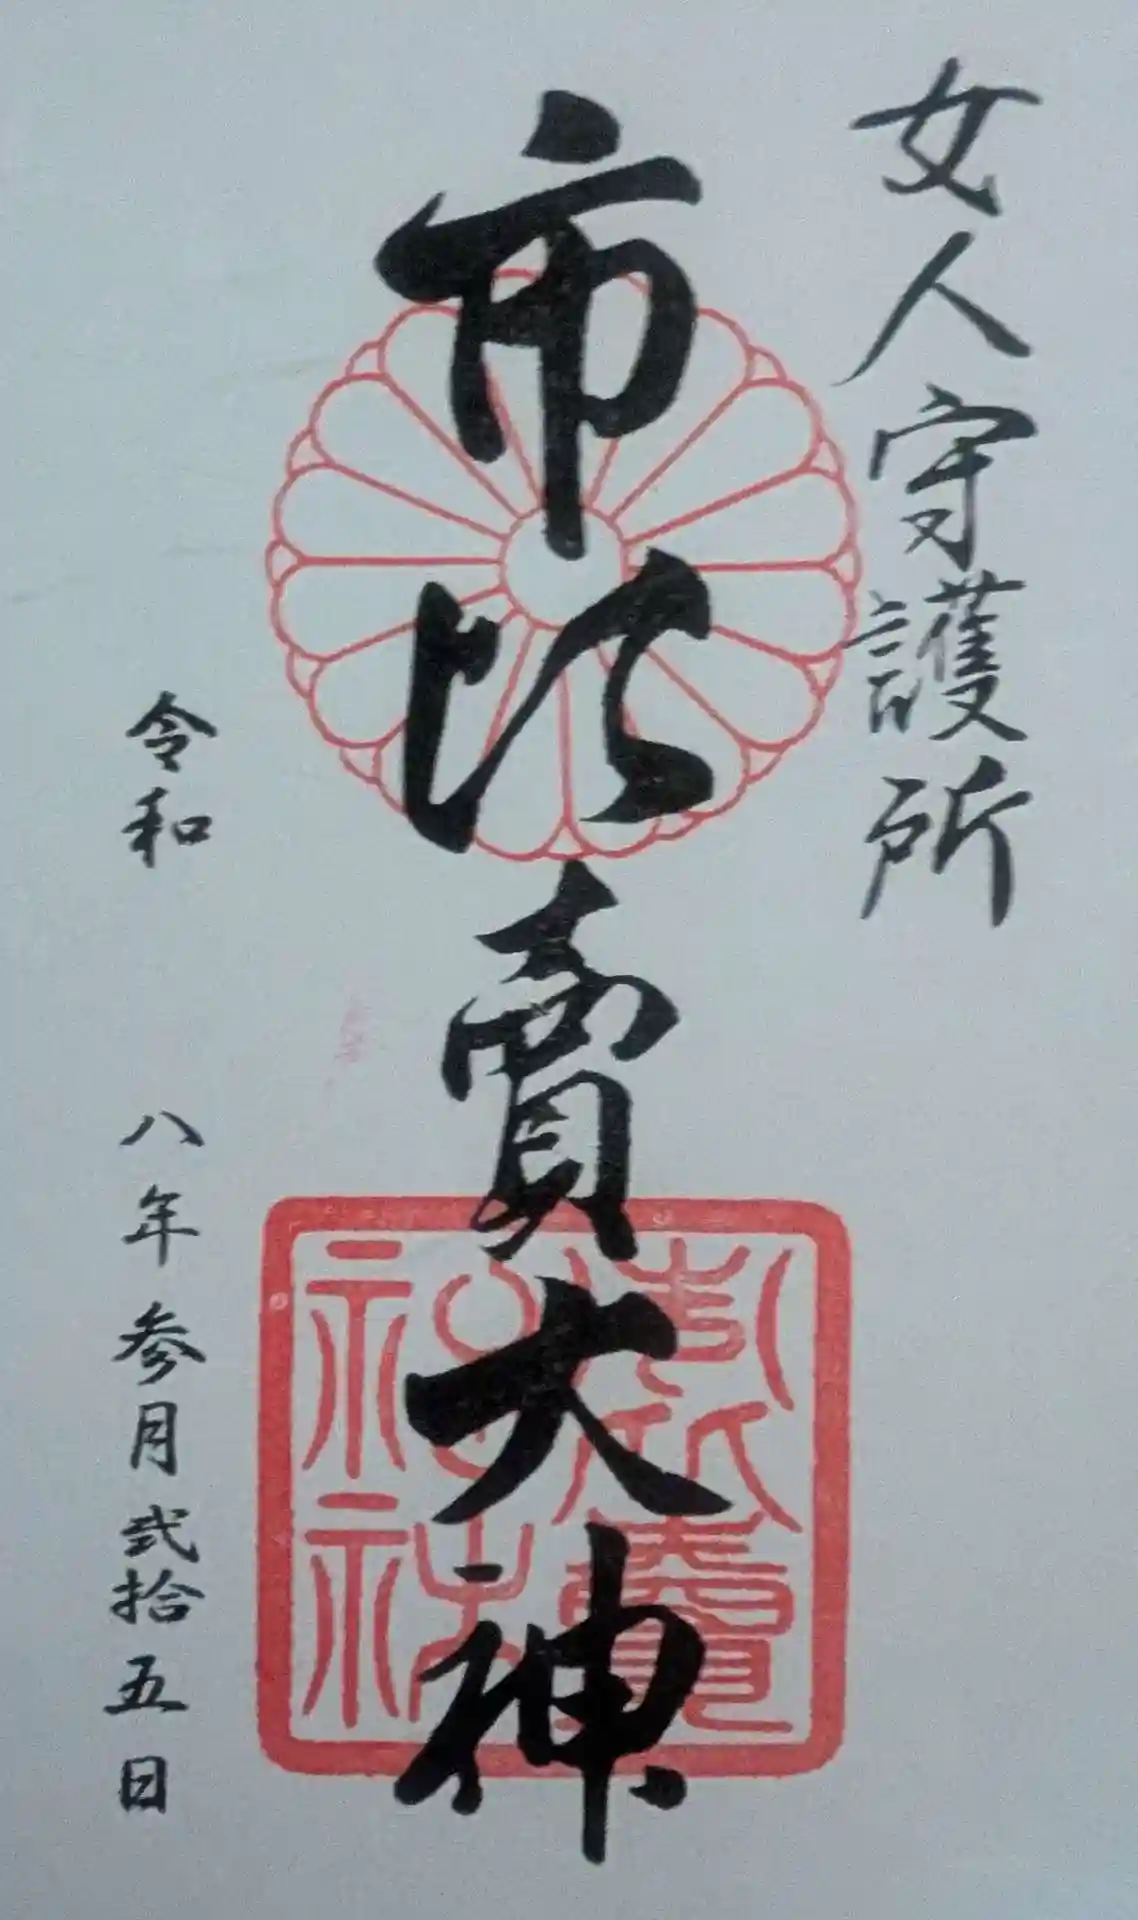 女人守護所
市比賣大神
市比賣神社
令和八年参月弐拾五日